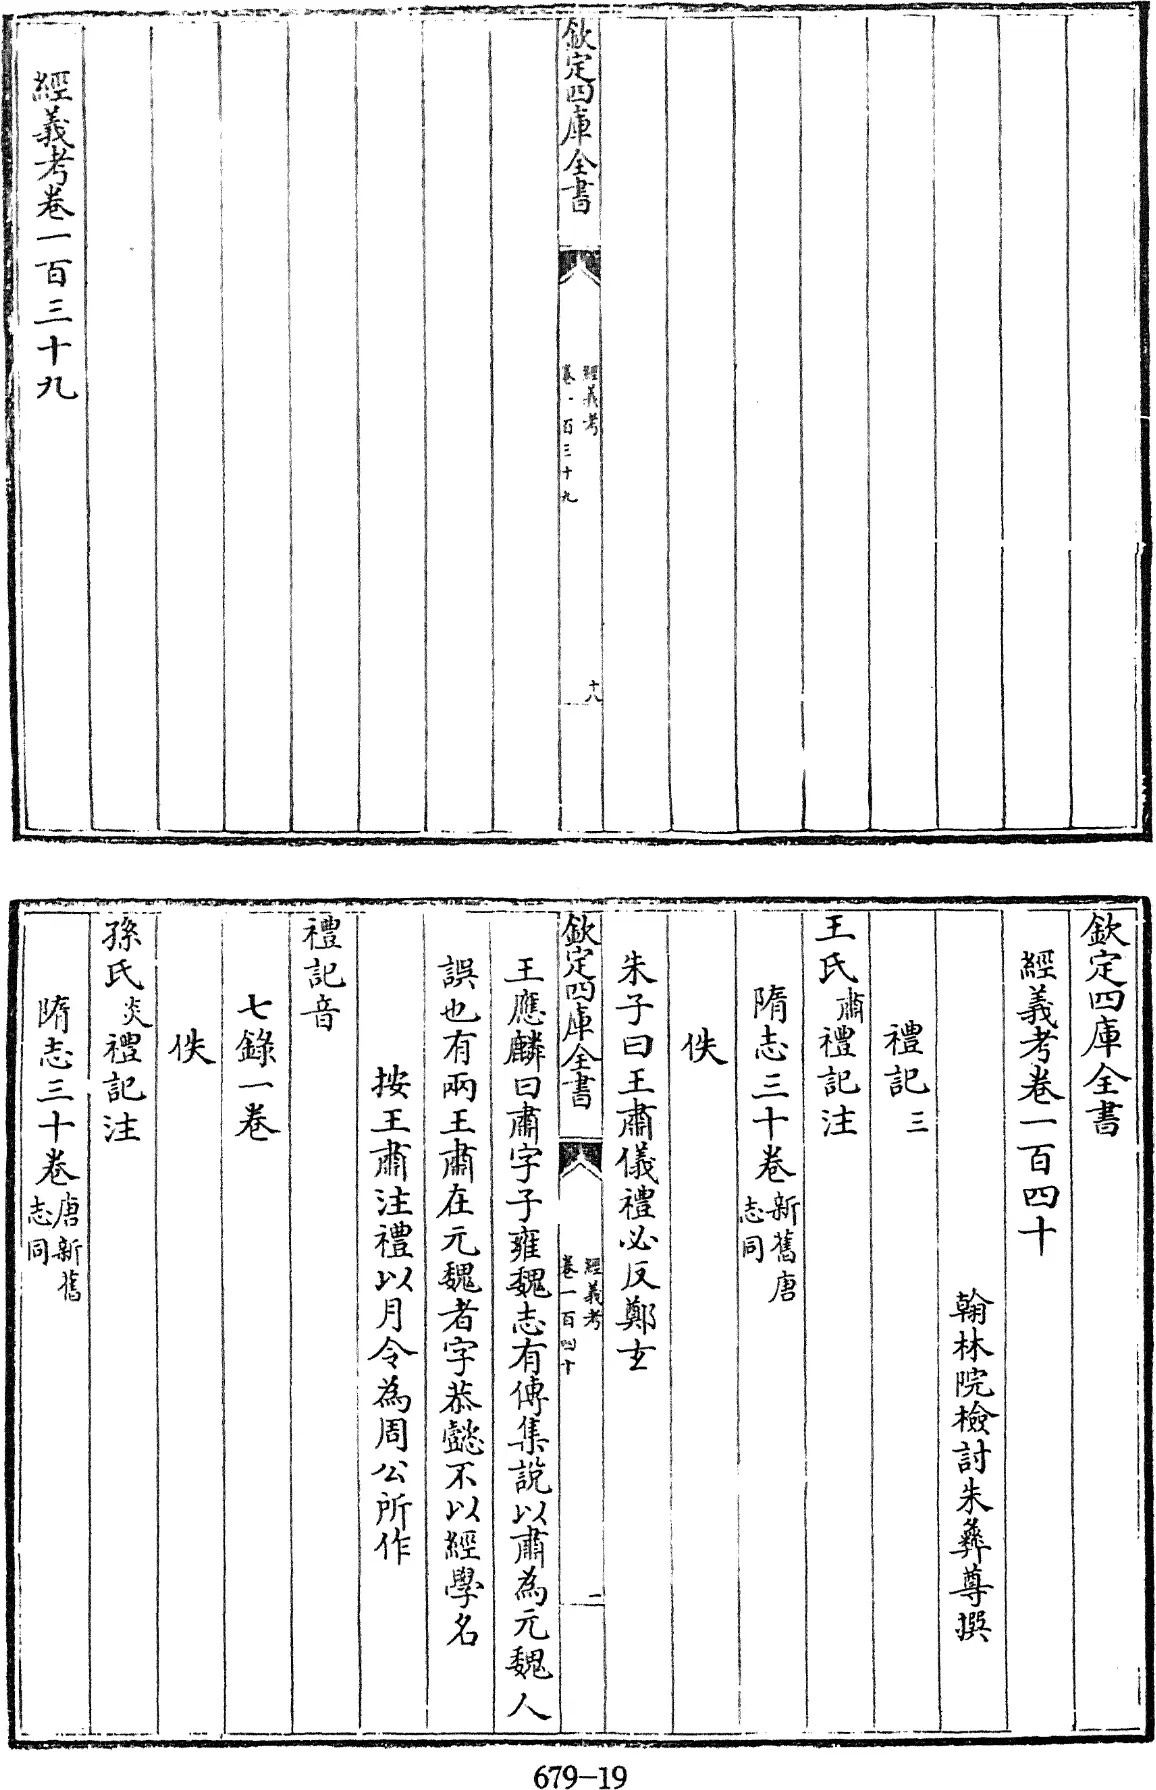 欽定四庫全書
經義考
卷一百三十九
十八
經義考卷一百三十九
欽定四庫全書
經義考卷一百四十
翰林院檢討朱彝尊撰
禮記三
王氏肅禮記注
隋志三十卷新舊唐
志同
佚
朱子曰王肅儀禮必反鄭玄
欽定四庫全書
經義考
卷一百四十
二
王應麟曰肅字子雍魏志有傳集說以肅為元魏人
誤也有兩王肅在元魏者字恭懿不以經學名
按王肅注禮以月令為周公所作
禮記音
七錄一卷
佚
孫氏炎禮記注
隋志三十卷唐新舊
志同
679-19